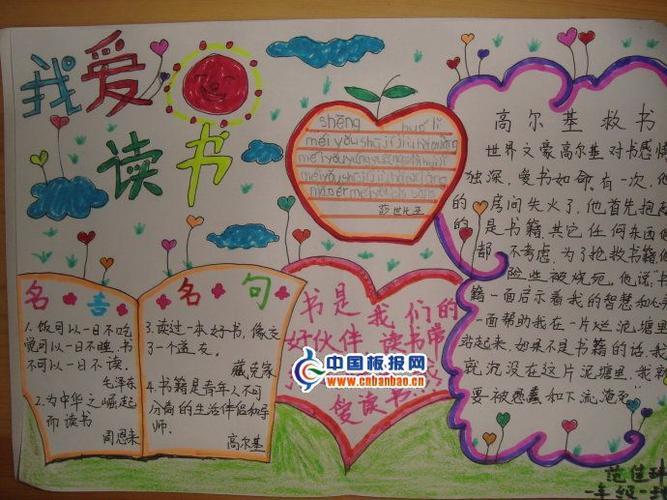 我爱
读书
shēng huó lǐ
莎世比亚
名言名句
1.饭可以一日不吃
觉可以一日不睡,书
不可以一日不读.
毛泽东
2.为中华之崛起
而读书
周恩来
3.读过一本好书,像交
了一个益友.
臧克家
4.书籍是青年人不可
分离的生活伴侣和导
师.
高尔基
书是我们的
好伙伴 读书
爱读书
中国板报网
www.cnbanbao.cn
高尔基救书
世界文豪高尔基对书感情
独深,爱书如命.有一次,他
的房间失火了,他首先抱起
的是书籍,其它任何东西他
都不考虑.为了抢救书籍他
险些被烧死.他说:"书
籍一面启示着我的智慧和心
一面帮助我在一片烂泥塘里
站起来,如果不是书籍的话,我
就沉没在这片泥塘里,我就
要被愚蠢和下流淹死"
范佳
一年级一班